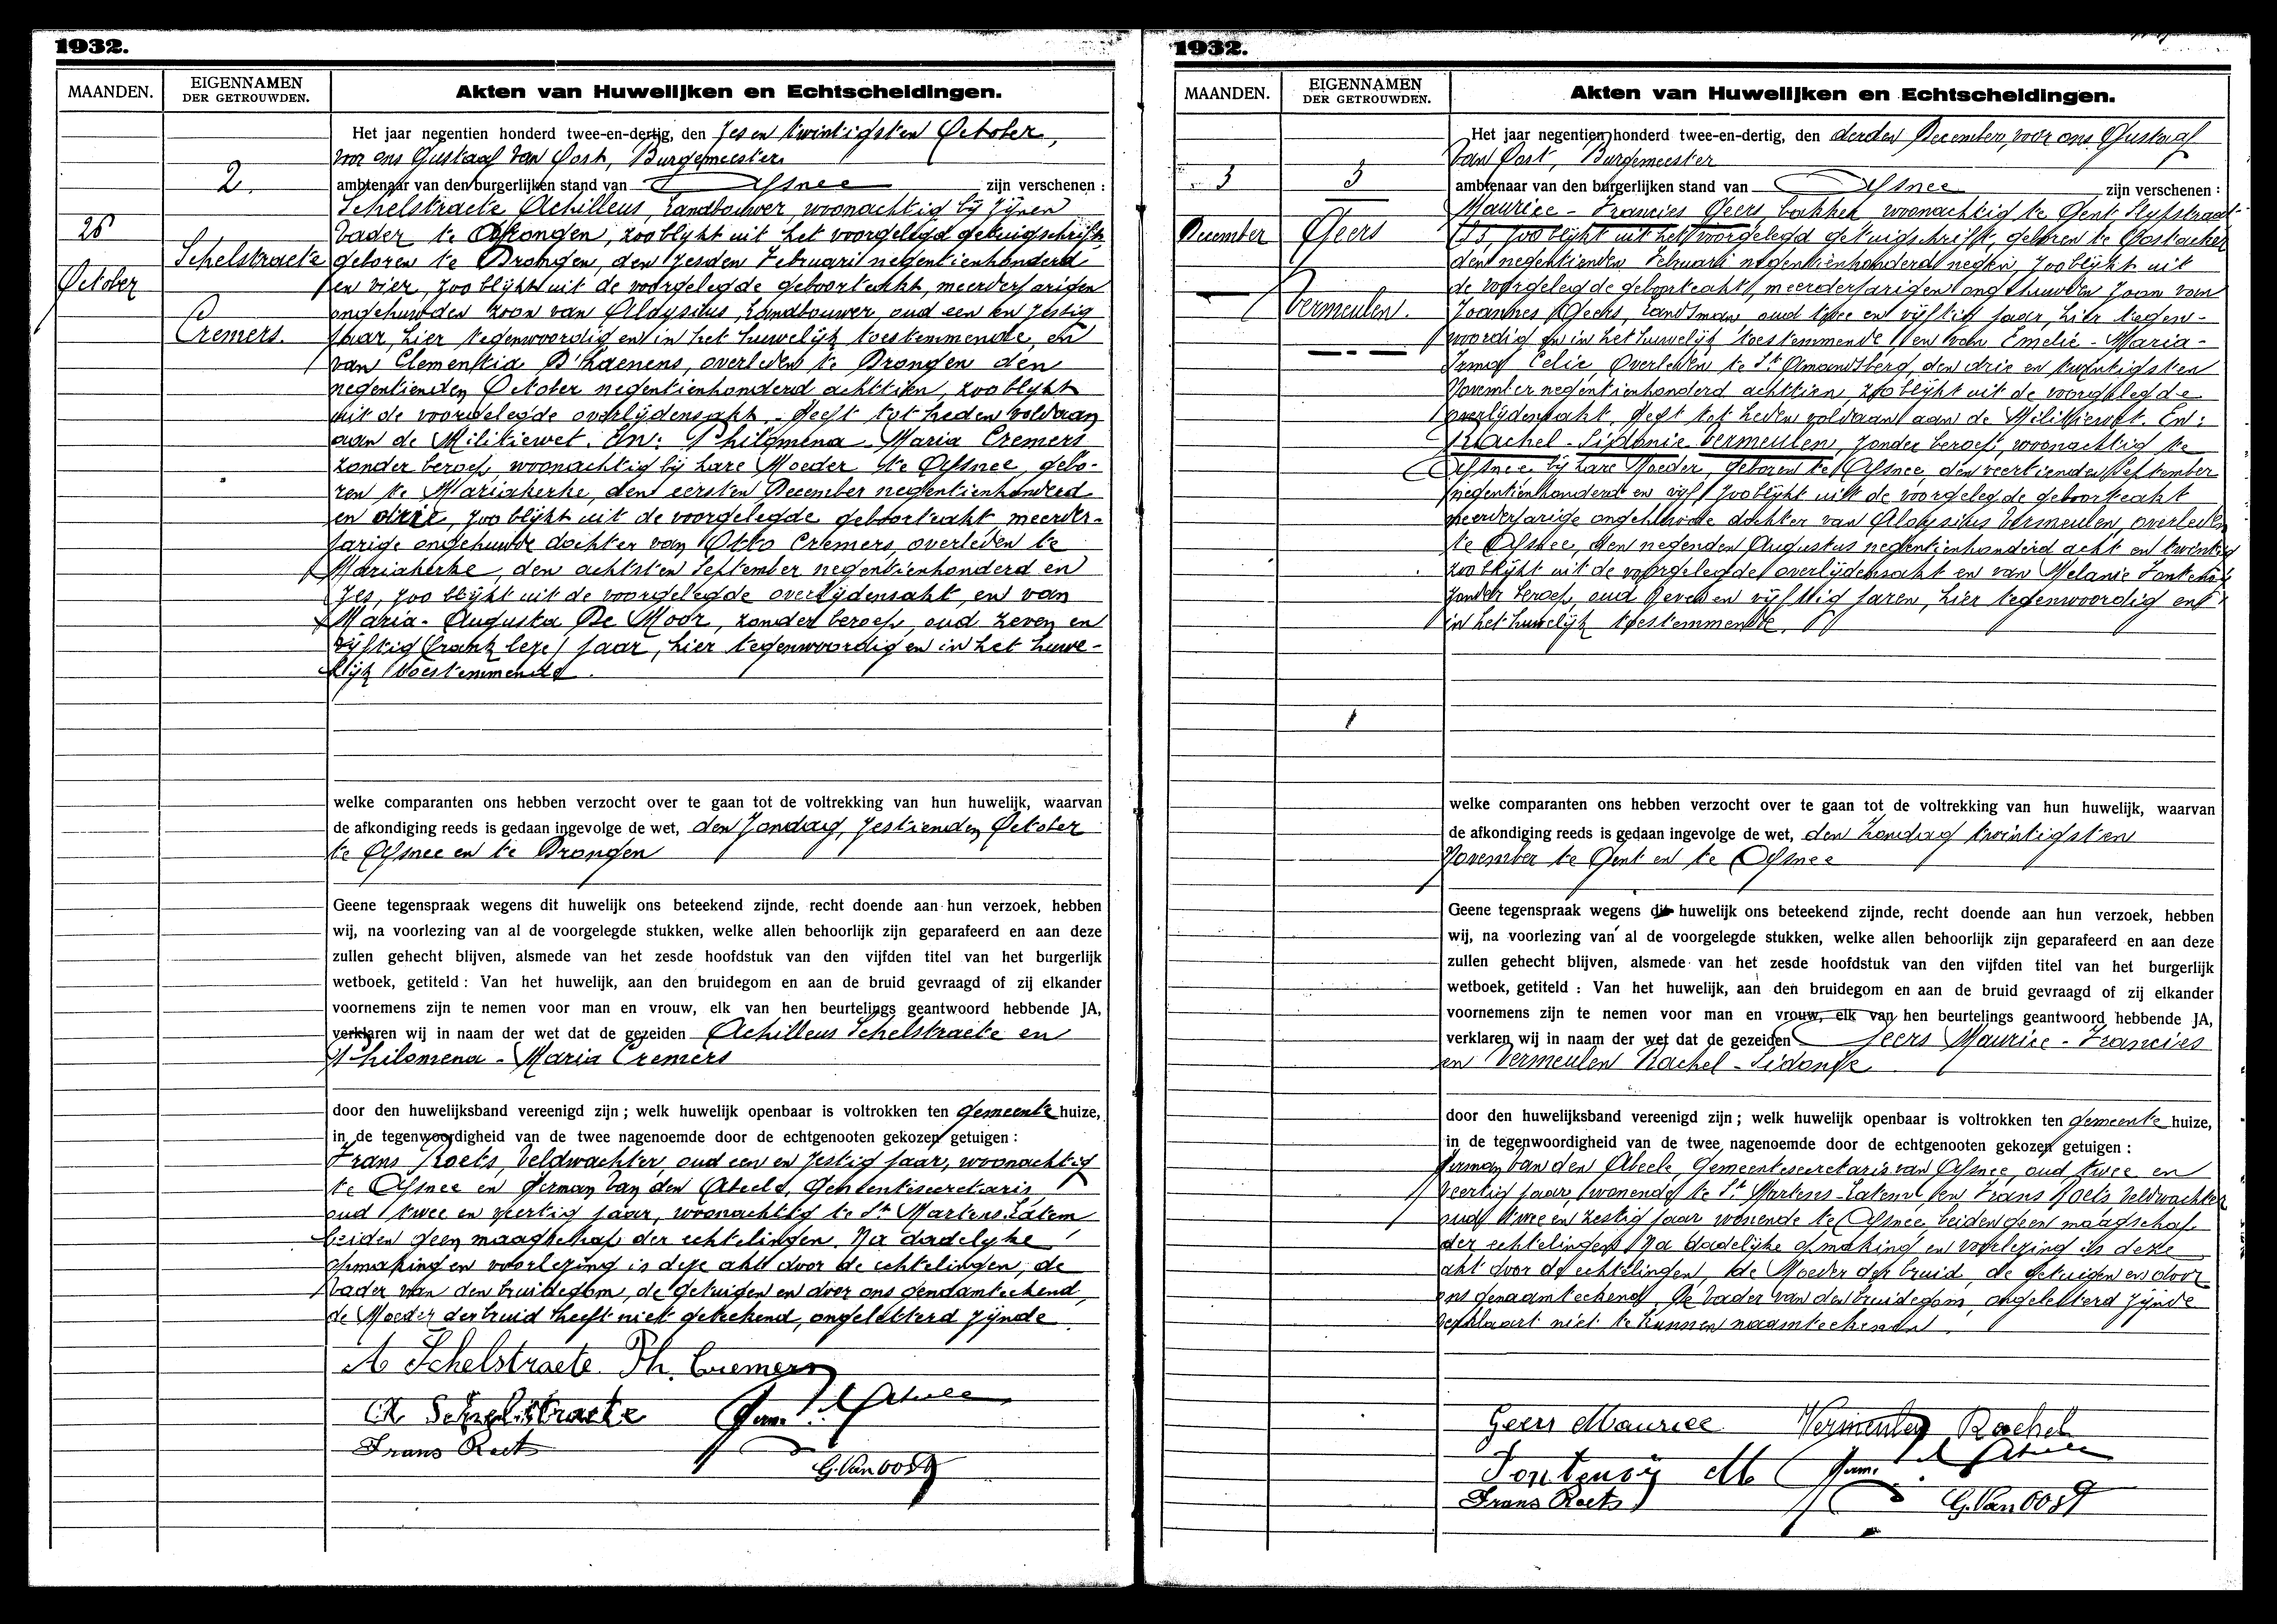 1932.
MAANDEN.
EIGENNAMEN
DER GETROUWDEN.
Akten van Huwelijken en Echtscheidingen.
2.
26
October
Schelstraete
Cremers.
Het jaar negentien honderd twee-en-dertig, den zes en twintigsten October,
voor ons Gustaaf Van Oost, Burgemeester
ambtenaar van den burgerlijken stand van Afsnee zijn verschenen :
Schelstraete Achilleus, Landbouwer, woonachtig bij zijnen
Vader te Drongen, zoo blijkt uit het voorgelegd getuigschrift
geboren te Drongen, den zesden Februari negentienhonderd
en vier, zoo blijkt uit de voorgelegde geboorteakt, meerderjarigen
ongehuwden zoon van Aloysius, Landbouwer, oud een en zestig
jaar, hier tegenwoordig en in het huwelijk toestemmende, en
van Clementia D'haenens, overleden te Drongen den
negentienden October negentienhonderd achttien, zoo blijkt
uit de voorgelegde overlijdensakt - Heeft tot heden voldaan
aan de Militiewet. En: Philomena - Maria Cremers
zonder beroep, woonachtig bij hare Moeder te Afsnee, gebo-
ren te Mariakerke, den eersten December negentienhonderd
en drie, zoo blijkt uit de voorgelegde geboorteakt, meerder-
jarige ongehuwde dochter van Otto Cremers, overleden te
Mariakerke, den achtsten September negentienhonderd en
zes, zoo blijkt uit de voorgelegde overlijdensakt, en van
Maria - Augusta De Moor, zonder beroep, oud zeven en
vijftig jaar, hier tegenwoordig en in het huwe-
lijk toestemmende.
welke comparanten ons hebben verzocht over te gaan tot de voltrekking van hun huwelijk, waarvan
de afkondiging reeds is gedaan ingevolge de wet, den Zondag, zestienden October
te Afsnee en te Drongen
Geene tegenspraak wegens dit huwelijk ons beteekend zijnde, recht doende aan hun verzoek, hebben
wij, na voorlezing van al de voorgelegde stukken, welke allen behoorlijk zijn geparafeerd en aan deze
zullen gehecht blijven, alsmede van het zesde hoofdstuk van den vijfden titel van het burgerlijk
wetboek, getiteld : Van het huwelijk, aan den bruidegom en aan de bruid gevraagd of zij elkander
voornemens zijn te nemen voor man en vrouw, elk van hen beurtelings geantwoord hebbende JA,
verklaren wij in naam der wet dat de gezeiden Achilleus Schelstraete en
Philomena - Maria Cremers
door den huwelijksband vereenigd zijn ; welk huwelijk openbaar is voltrokken ten gemeente huize,
in de tegenwoordigheid van de twee nagenoemde door de echtgenooten gekozen getuigen :
Frans Roets, Veldwachter, oud een en zestig jaar, woonachtig
te Afsnee en Herman Van den Abeele, Gemeentesecretaris,
oud twee en veertig jaar, woonachtig te St Martens Latem
beiden geen maagschap der echtelingen. Na dadelyke
opmaking en voorlezing is deze akt door de echtelingen, de
Vader van den bruidegom, de getuigen en door ons genaamteekend,
de Moeder der bruid heeft niet geteekend, ongeletterd zijnde.
A Schelstraete. Ph. Cremers
A Schelstraete
Frans Roets
G. Van Oost
1932.
MAANDEN.
EIGENNAMEN
DER GETROUWDEN.
Akten van Huwelijken en Echtscheidingen.
3
3
December
Geers
Vermeulen.
Het jaar negentien honderd twee-en-dertig, den derden December, voor ons Gustaaf
Van Oost, Burgemeester
ambtenaar van den burgerlijken stand van Afsnee zijn verschenen :
Maurice - Francies Geers, bakker, woonachtig te Gent
zoo blijkt uit het voorgelegd getuigschrift, geboren te Oostacker
den negentienden Februari negentienhonderd negen, zoo blijkt uit
de voorgelegde geboorteakt, meerderjarigen ongehuwden zoon van
Joannes Geers, Landsman, oud twee en vijftig jaar, hier tegen-
woordig en in het huwelijk toestemmende, en van Emelie - Maria -
Irma Celie, Overleden te St Amandsberg, den drie en twintigsten
November negentienhonderd achttien, zoo blijkt uit de voorgelegde
overlijdensakt, Heeft tot heden voldaan aan de Militiewet. En:
Rachel - Sidonie Vermeulen, zonder beroep, woonachtig te
Afsnee, bij hare Moeder, geboren te Afsnee, den veertienden September
negentienhonderd en vijf, zoo blijkt uit de voorgelegde geboorteakt
meerderjarige ongehuwde dochter van Aloysius Vermeulen, overleden
te Afsnee, den negenden Augustus negentienhonderd acht en twintig
zoo blijkt uit de voorgelegde overlijdensakt en van Melanie
zonder beroep, oud zeven en vijftig jaren, hier tegenwoordig en
in het huwelijk toestemmende.
welke comparanten ons hebben verzocht over te gaan tot de voltrekking van hun huwelijk, waarvan
de afkondiging reeds is gedaan ingevolge de wet, den Zondag twintigsten
November te Gent en te Afsnee
Geene tegenspraak wegens dit huwelijk ons beteekend zijnde, recht doende aan hun verzoek, hebben
wij, na voorlezing van al de voorgelegde stukken, welke allen behoorlijk zijn geparafeerd en aan deze
zullen gehecht blijven, alsmede van het zesde hoofdstuk van den vijfden titel van het burgerlijk
wetboek, getiteld : Van het huwelijk, aan den bruidegom en aan de bruid gevraagd of zij elkander
voornemens zijn te nemen voor man en vrouw, elk van hen beurtelings geantwoord hebbende JA,
verklaren wij in naam der wet dat de gezeiden Geers Maurice - Francies
en Vermeulen Rachel - Sidonie
door den huwelijksband vereenigd zijn ; welk huwelijk openbaar is voltrokken ten gemeente huize,
in de tegenwoordigheid van de twee nagenoemde door de echtgenooten gekozen getuigen :
Herman Van den Abeele, Gemeentesecretaris van Afsnee, oud twee en
veertig jaar, wonende te St Martens-Latem en Frans Roets Veldwachter
oud twee en zestig jaar wonende te Afsnee, beiden geen maagschap
der echtelingen. Na dadelijke opmaking en voorlezing is deze
akt door de echtelingen, de Moeder der bruid, de getuigen en door
ons genaamteekend, De Vader van den bruidegom, ongeletterd zijnde
verklaart niet te kunnen naamteekenen.
Geers Maurice Vermeulen Rachel
Fontenoij M
Frans Roets
G. Van Oost